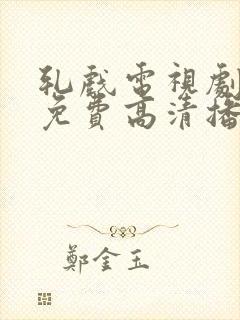 乳戲電視劇
免費高清播
鄭金玉